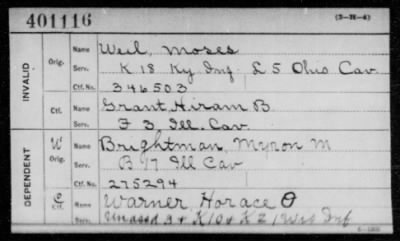 401116 (3-H-4)
INVALID
Orig. Name Weil, Moses
Serv. K 18 Ky Inf L 5 Ohio Cav
Ctf. No. 346503
Ctf. Name Grant, Hiram B
Serv. F 3 Ill. Cav.
DEPENDENT
W Orig. Name Brightman, Myron M
Serv. B 17 Ill Cav
Ctf. No. 275294
C Ctf. Name Warner, Horace O
Serv. Unassd 3 & K 10 & K 21 Wis Inf